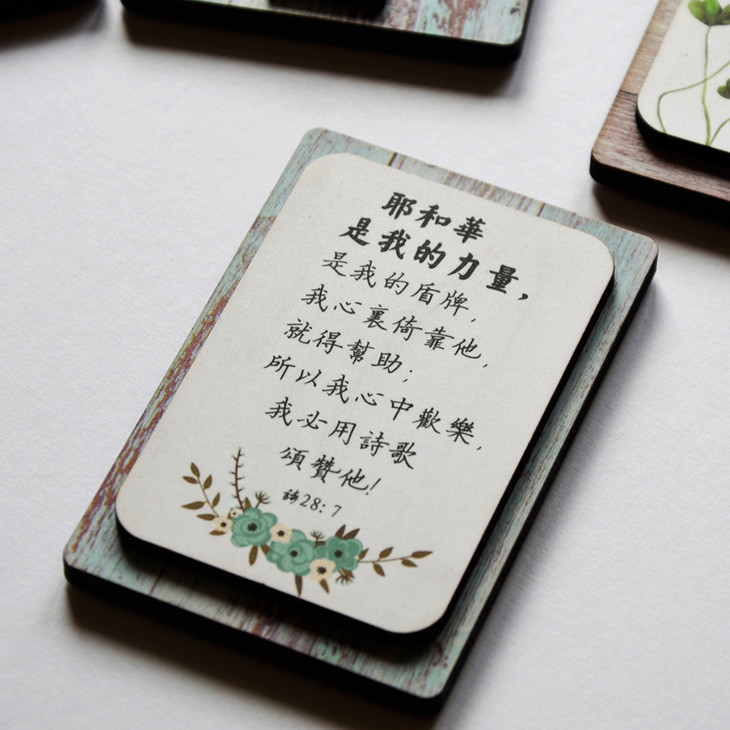 耶和華
是我的力量,
是我的盾牌,
我心裏倚靠他,
就得幫助;
所以我心中歡樂,
我必用詩歌
頌贊他!
詩28:7